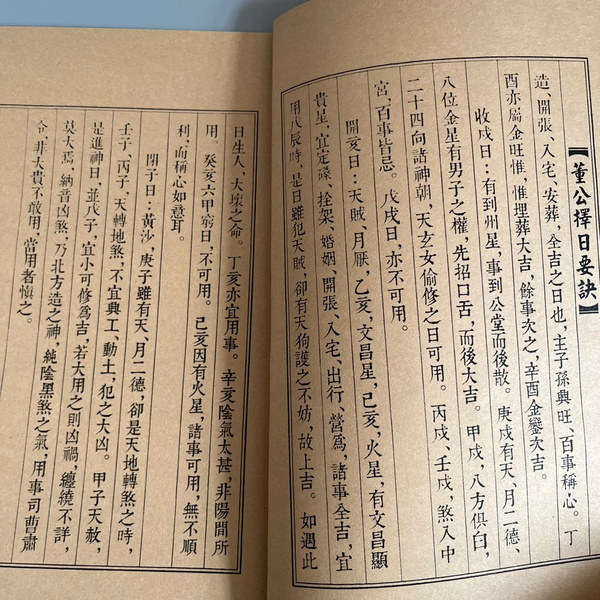 【董公擇日要訣】
造、開張、入宅、安葬，全吉之日也，主子孫興旺、百事稱心。丁
酉亦屬金旺惟，惟埋葬大吉，餘事次之，辛酉金鑾次吉。
收戌日：有到州星，事到公堂而後散。庚戌有天、月二德、
八位金星有男子之權，先招口舌，而後大吉。甲戌，八方俱白，
二十四向諸神朝，天玄女偷修之日可用。丙戌、壬戌，煞入中
宮，百事皆忌。戊戌日，亦不可用。
開亥日：天賊、月厭，乙亥，文昌星，己亥，火星，有文昌顯
貴星，宜定磉、拴架、婚姻、開張、入宅、出行、營為，諸事全吉，宜
用戊辰時，是日雖犯天賊，卻有天狗護之不妨，故上吉。如遇此
日生人，大壞之命。丁亥亦宜用事。辛亥陰氣太甚，非陽間所
用。癸亥六甲窮日，不可用。己亥因有火星，諸事可用，無不順
利，而稱心如意耳。
閉子日：黃沙，庚子雖有天、月二德，卻是天地轉煞之時，
壬子、丙子，天轉地煞，不宜興工、動土，犯之大凶。甲子天赦，
是進神日，並戊子，宜小可修為吉，若大用之則凶禍，纏繞不詳，
莫大焉，納音凶煞，乃北方造之神，純陰黑煞之氣，用事司曹肅
令，非大貴不敢用，當用者慎之。